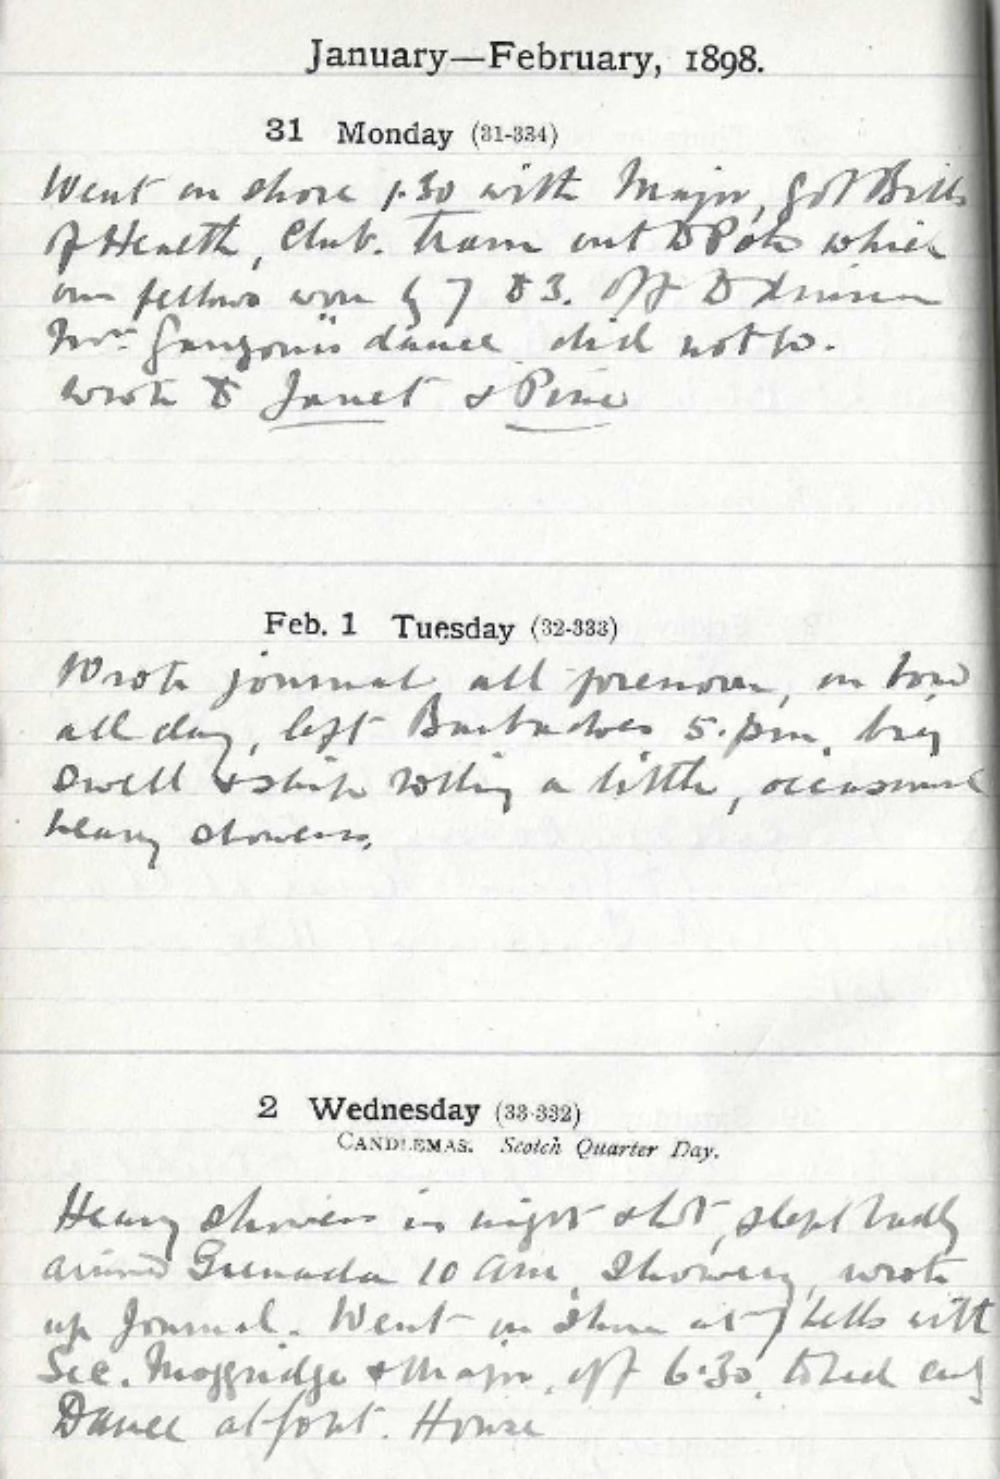 January—February, 1898.
31 Monday (31-334)
Went on shore 1.30 with Major, got Bills
of Health, Club. Tram out to Polo which
our fellows won by 7 to 3. Off to dinner
Mrs. dance did not go.
wrote to Janet & Pine
Feb. 1 Tuesday (32-333)
Wrote journal all forenoon, on board
all day, left Barbadoes 5. pm, big
swell & ship rolling a little, occasional
heavy showers.
2 Wednesday (33-332)
CANDLEMAS. Scotch Quarter Day.
Heavy showers in night & hot, slept badly
arrived Grenada 10 am, Showery, wrote
up Journal. Went on shore at 7 bells with
Sec. Moggridge & Major, off 6.30, to bed early
Dance at Govt. House